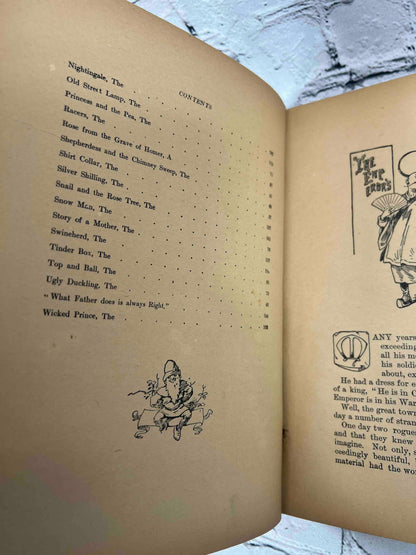 CONTENTS
Nightingale, The
Old Street Lamp, The
Princess and the Pea, The
Racers, The
Rose from the Grave of Homer, A
Shepherdess and the Chimney Sweep, The
Shirt Collar, The
Silver Shilling, The
Snail and the Rose Tree, The
Snow Man, The
Story of a Mother, The
Swineherd, The
Tinder Box, The
Top and Ball, The
Ugly Duckling, The
"What Father does is always Right."
Wicked Prince, The
THE
EMP
EROR'S
MANY years
exceeding
all his m
his soldie
about, ex
He had a dress for e
of a king, "He is in C
Emperor is in his War
Well, the great town
day a number of stran
One day two rogues
and that they knew
imagine. Not only, s
ceedingly beautiful,
material had the wo